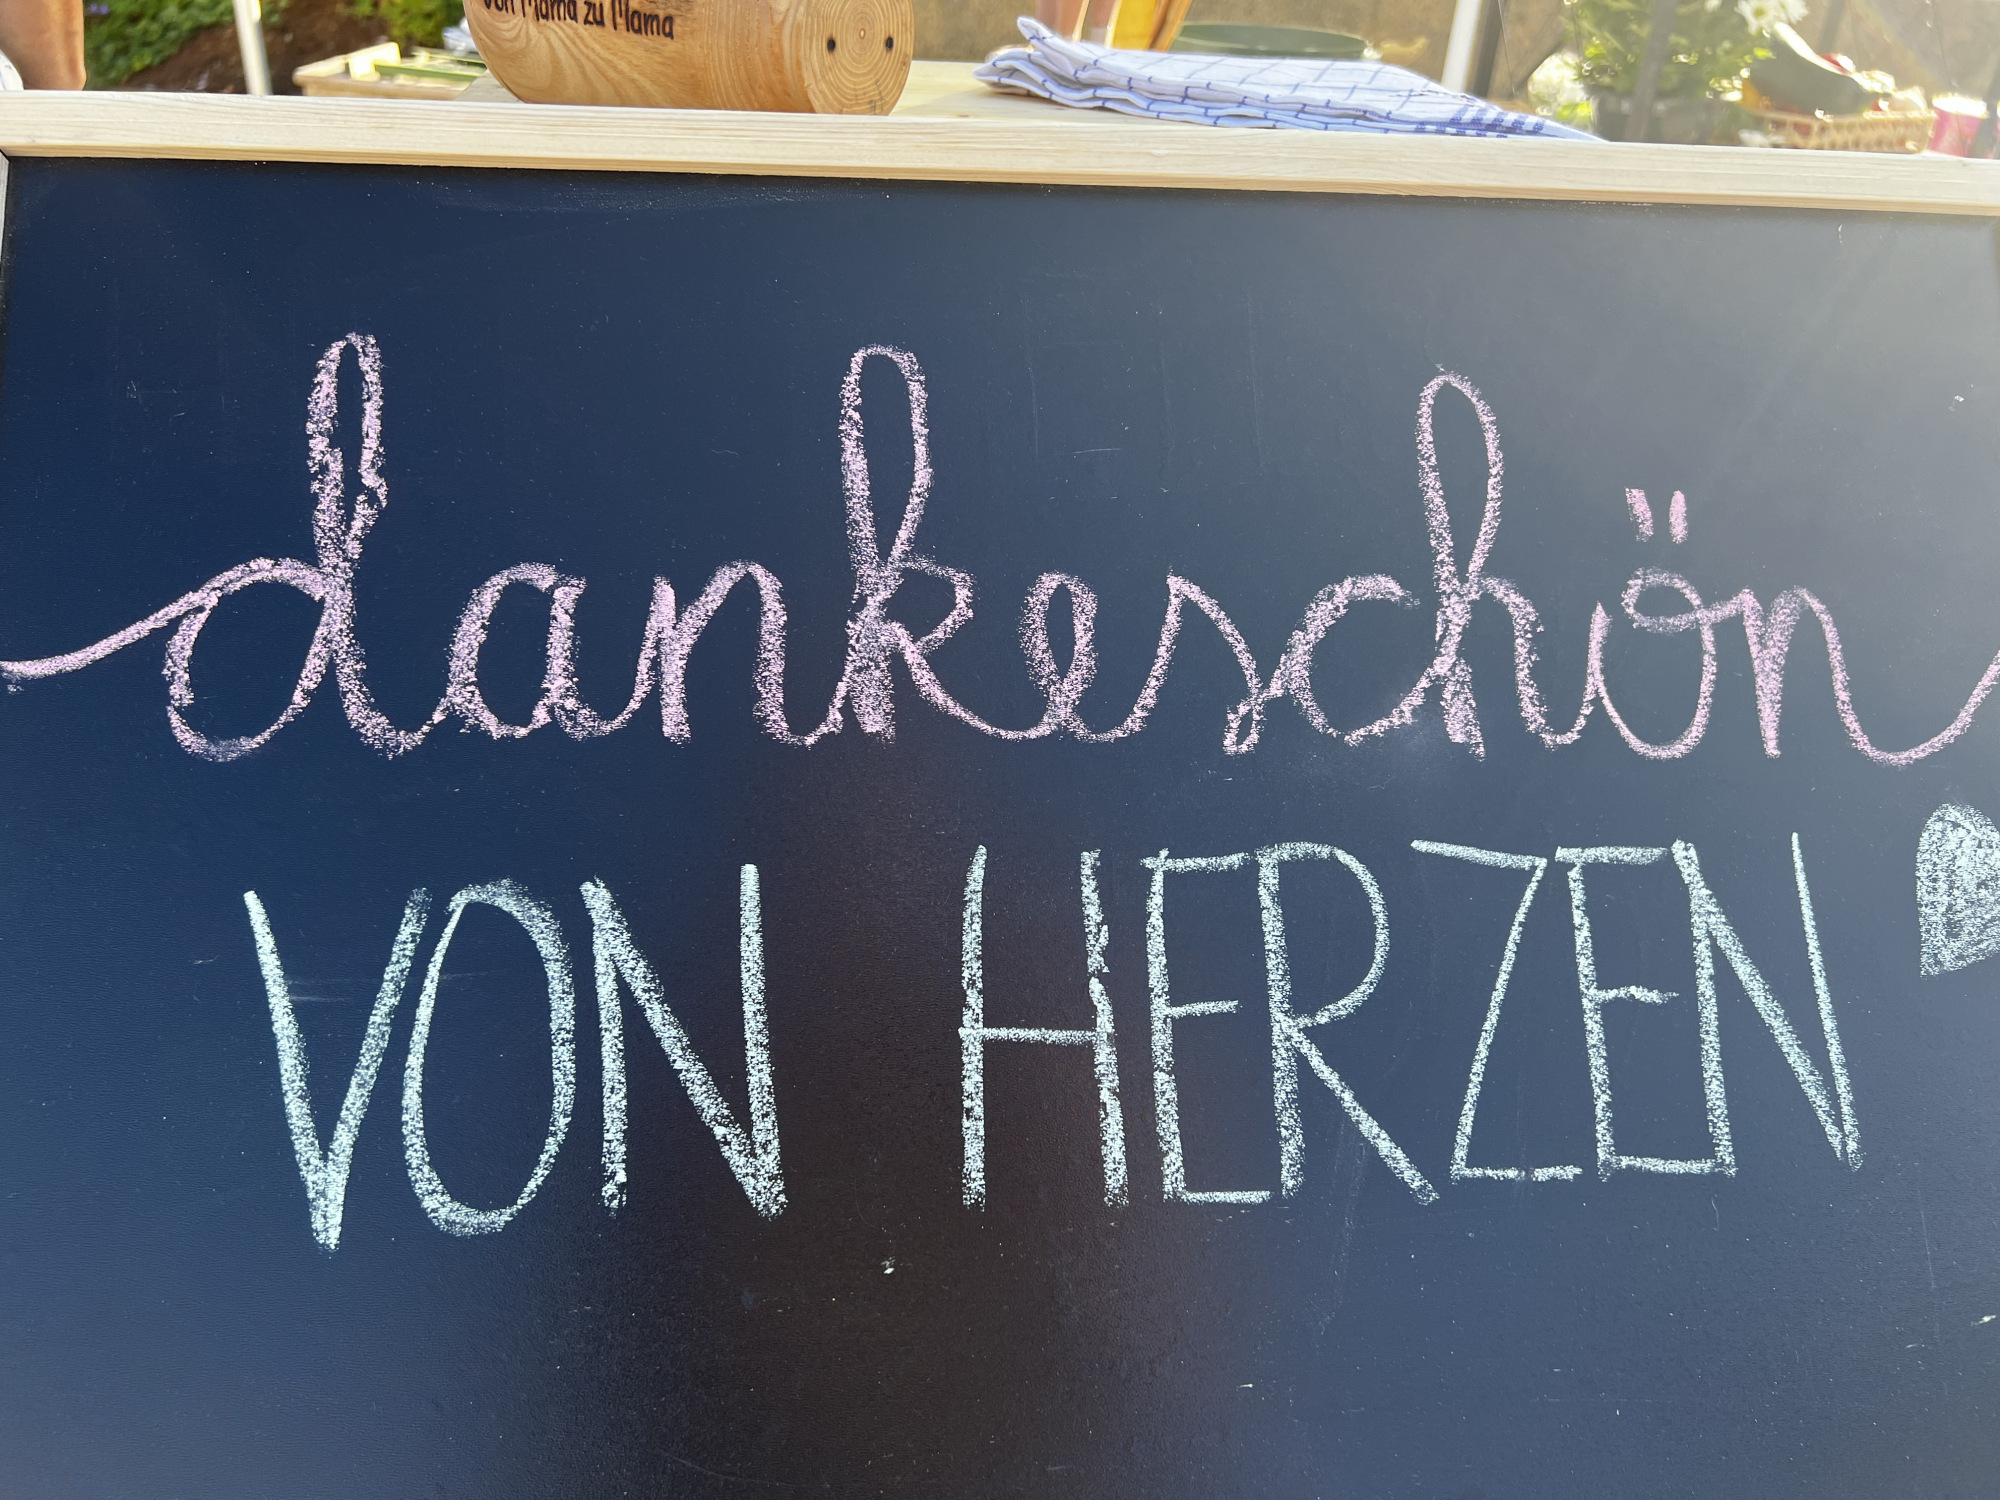 von Mama zu Mama
dankeschön
VON HERZEN